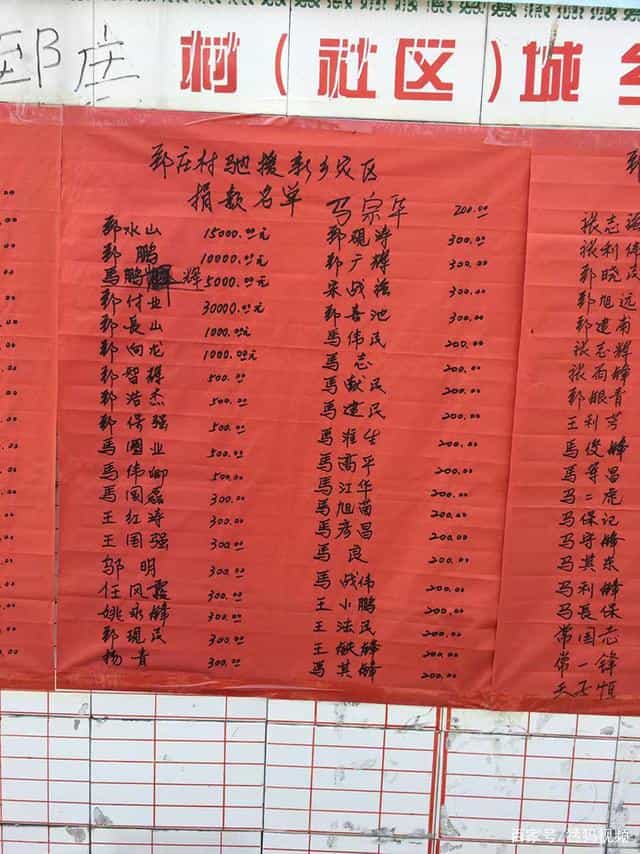 邵庄 村（社区）城
郅庄村驰援新乡灾区
捐款名单
郅水山 15000.00元
郅鹏 10000.00元
馬鹏辉 5000.00元
郅付业 30000.00元
郅長山 1000.00元
郅向龙 1000.00元
郅智 500.00
郅浩杰 500.00
郅保强 500.00
馬國业 500.00
馬伟卿 500.00
馬国磊 300.00
王红涛 300.00
王国强 300.00
邬明 300.00
任风霞 300.00
姚永峰 300.00
郅现民 300.00
杨青 300.00
马宗华 200.00
郅砚涛 300.00
郅广辉 300.00
宋战 300.00
郅喜池 300.00
馬伟民 200.00
馬志 200.00
馬献民 200.00
馬建民 200.00
馬淮生 200.00
馬高平 200.00
馬江华 200.00
馬旭 200.00
馬彦昌 200.00
馬良 200.00
馬战伟 200.00
王小鹏 200.00
王法民 200.00
王峰 200.00
馬其峰 200.00
张志
张利伟
郅晓民
郅旭远
郅建南
张志辉
张尚峰
郅根青
王利芳
馬俊峰
馬等昌
马二虎
马保记
马守峰
马其东
马利峰
马長保
常国志
常一锋
百家号